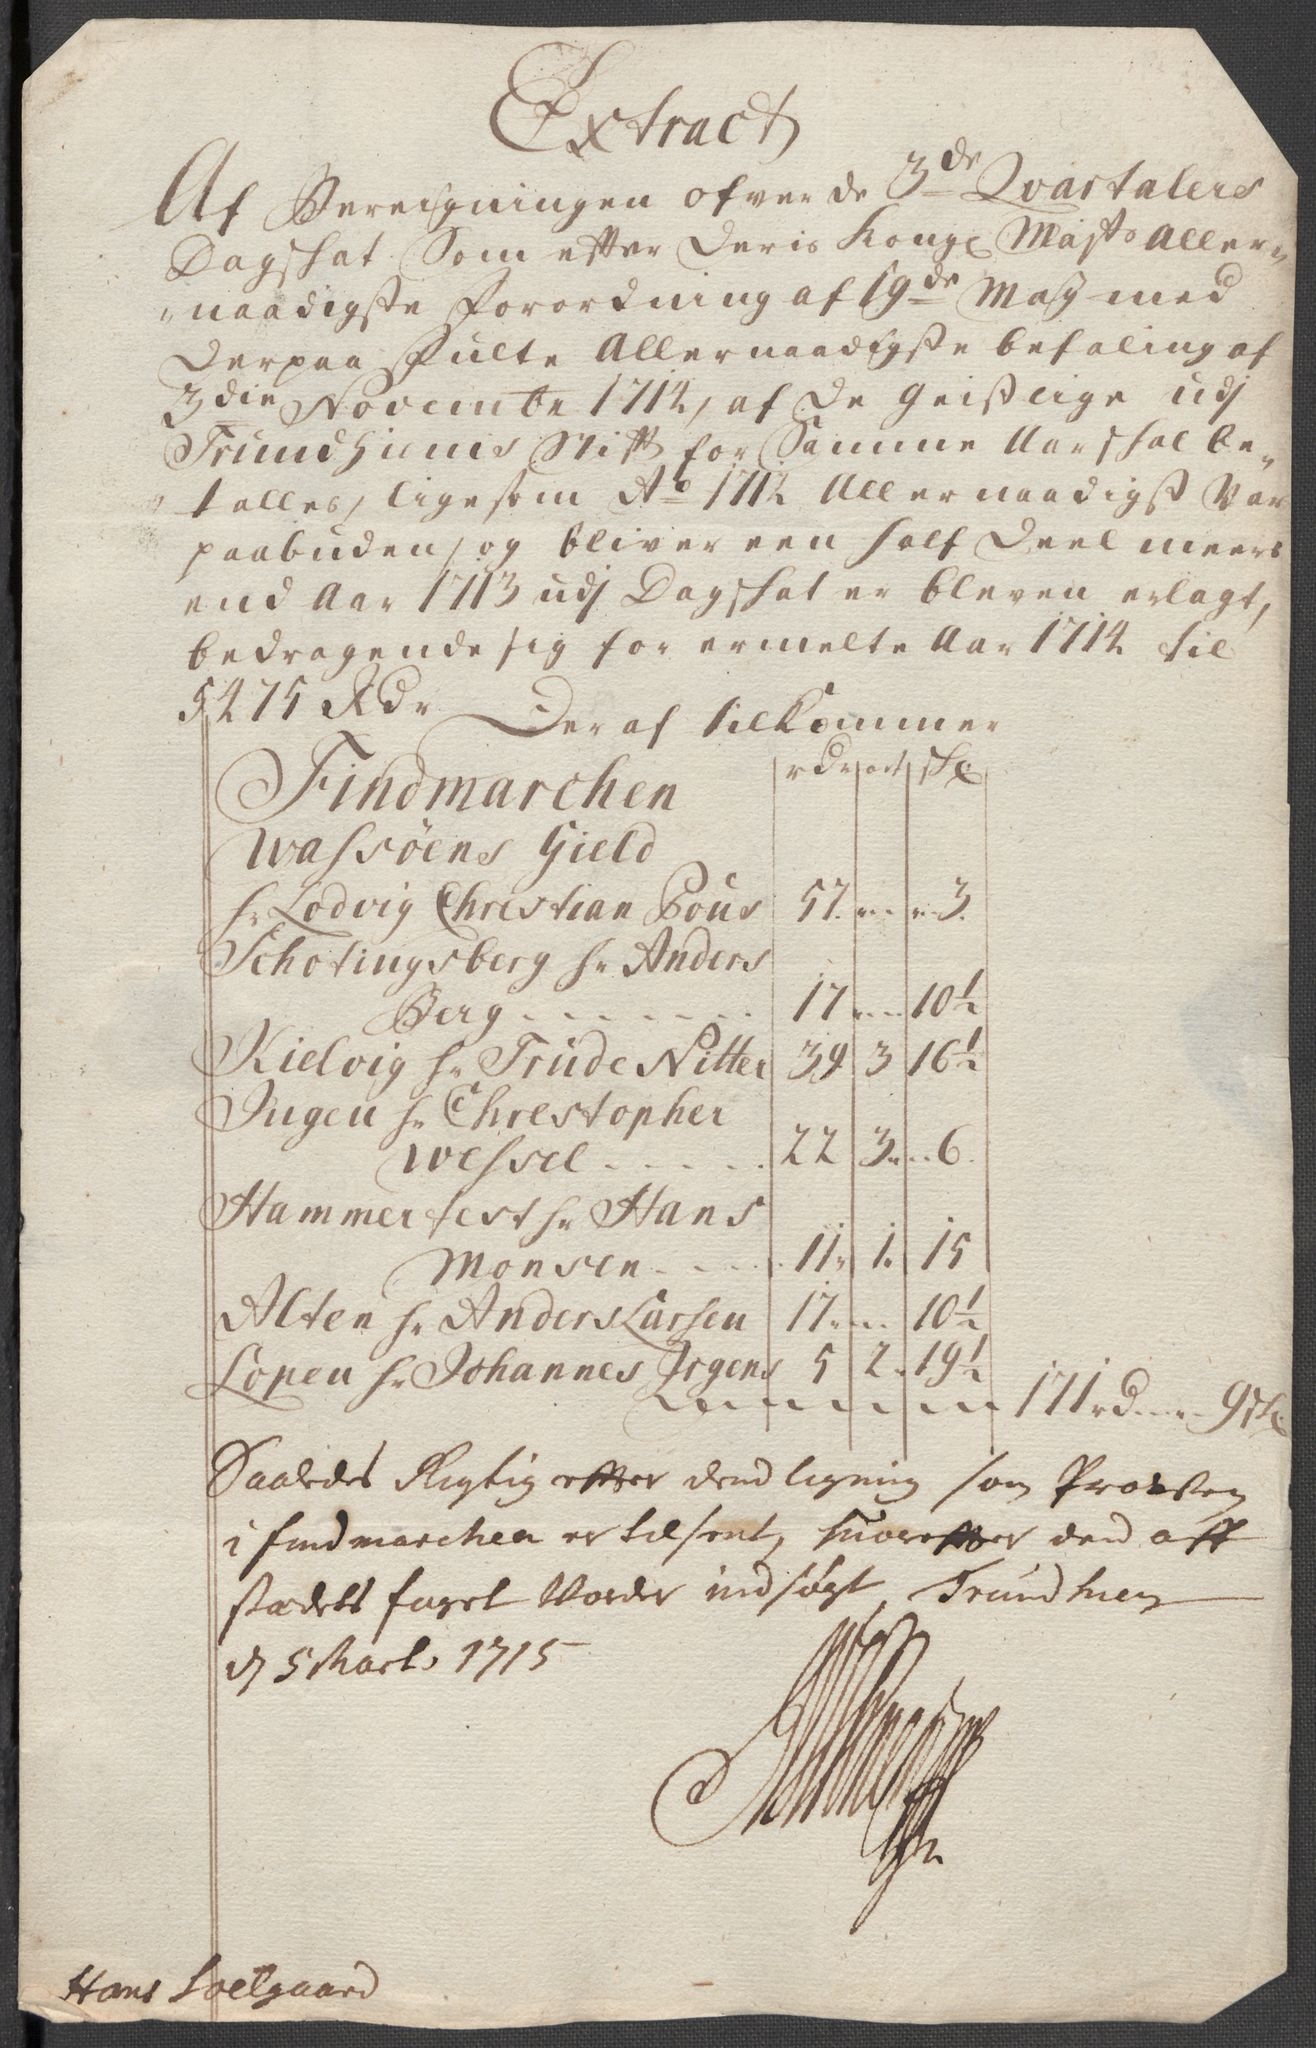 Extract
Af Beregningen ofver de 3de Qvartalers
Dagskat Som efter Deris Kongl Mayts Aller-
naadigste Forordning af 19de May med
Derpaa fulte Allernaadigste befaling af
3die Novembr 1714, af de Geistlige udj
Trundhiems Stift for Samme Aar skal be-
talles, ligesom Ao 1712 Allernaadigst Var
paabuden, og bliver een half Deel meere
end Aar 1713 udj Dagskat er bleven erlagt,
bedragende sig for ermelte Aar 1714 til
5475 Rdr Deraf tilkommer
Findmarchen rdr ort sk
Wassöens Gield
hr Lodvig Christian Pous 57 .. 3.
Schotingsberg hr Anders
Berg . . . . . . . 17 .. 10½
Kielvig hr Trude Nitter 39 3 16½
Ingen hr Christopher
Wessel . . . . . 22 3 .. 6.
Hammerfest hr Hans
Monsen . . . . 11 1. 15
Alten hr Anders Larsen 17 .. 10½
Lopen hr Johannes Jrgens 5 2 19½
171 rd .. 9 sk
Saaledes Rigtig efter dend ligning som Provsten
i findmarchen er tilsent, huorefter den aff
stædets foget Vorder indsøgt, Trundhiem
d 5 Marts 1715
Hans Soelgaard